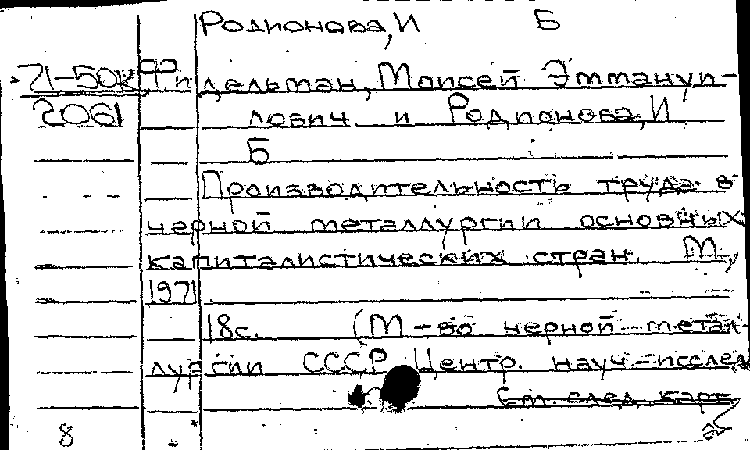 Родионова, И Б
71-50к Фидельман, Моисей Эммануи-
2061 лович и Родионова, И
Б
Производительность труда в
черной металлургии основных
капиталистических стран. М.,
1971.
18с. (М-во черной метал-
лургии СССР Центр. науч-исслед
См. след. карт.
8